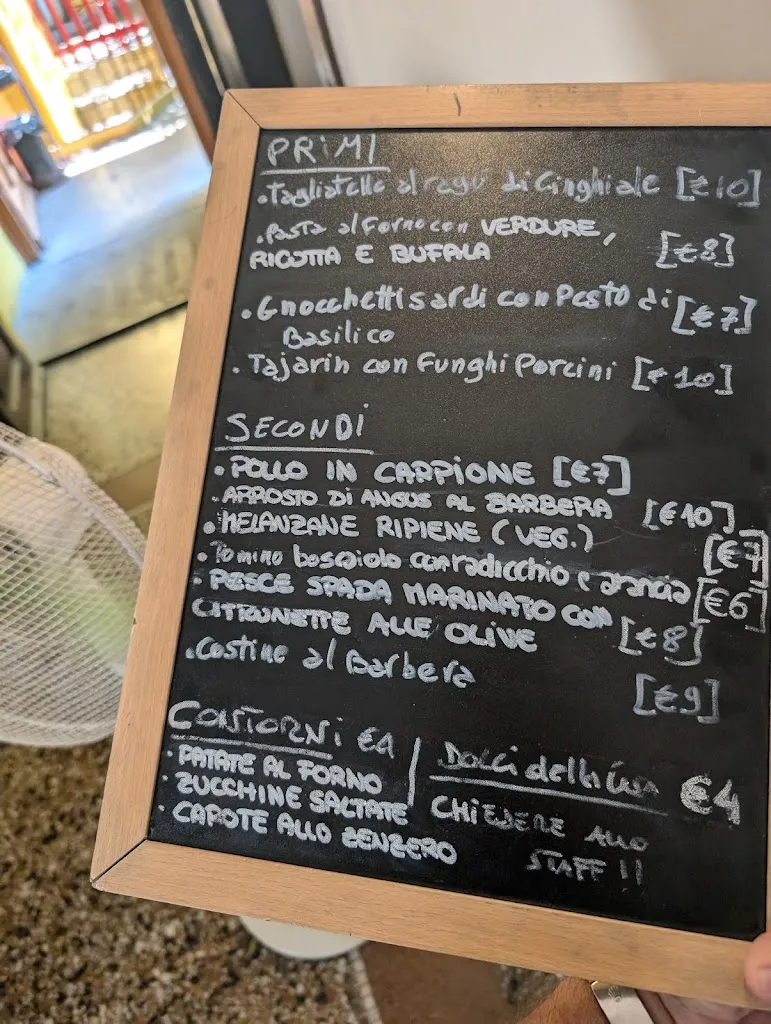 PRIMI
• Tagliatelle al ragu' di Cinghiale [€10]
• Pasta al Forno con VERDURE,
RICOTTA E BUFALA [€8]
• Gnocchetti sardi con Pesto di [€7]
Basilico
• Tajarin con Funghi Porcini [€10]
SECONDI
• POLLO IN CARPIONE [€7]
• ARROSTO DI ANGUS AL BARBERA [€10]
• MELANZANE RIPIENE (VEG.) [€7]
• Tomino boscaiolo con radicchio e arancia [€6]
• PESCE SPADA MARINATO CON
CITRONETTE ALLE OLIVE [€8]
• Costine al Barbera [€9]
CONTORNI €4
• PATATE AL FORNO
• ZUCCHINE SALTATE
• CAROTE ALLO ZENZERO
Dolci della Casa €4
CHIEDERE ALLO
STAFF !!